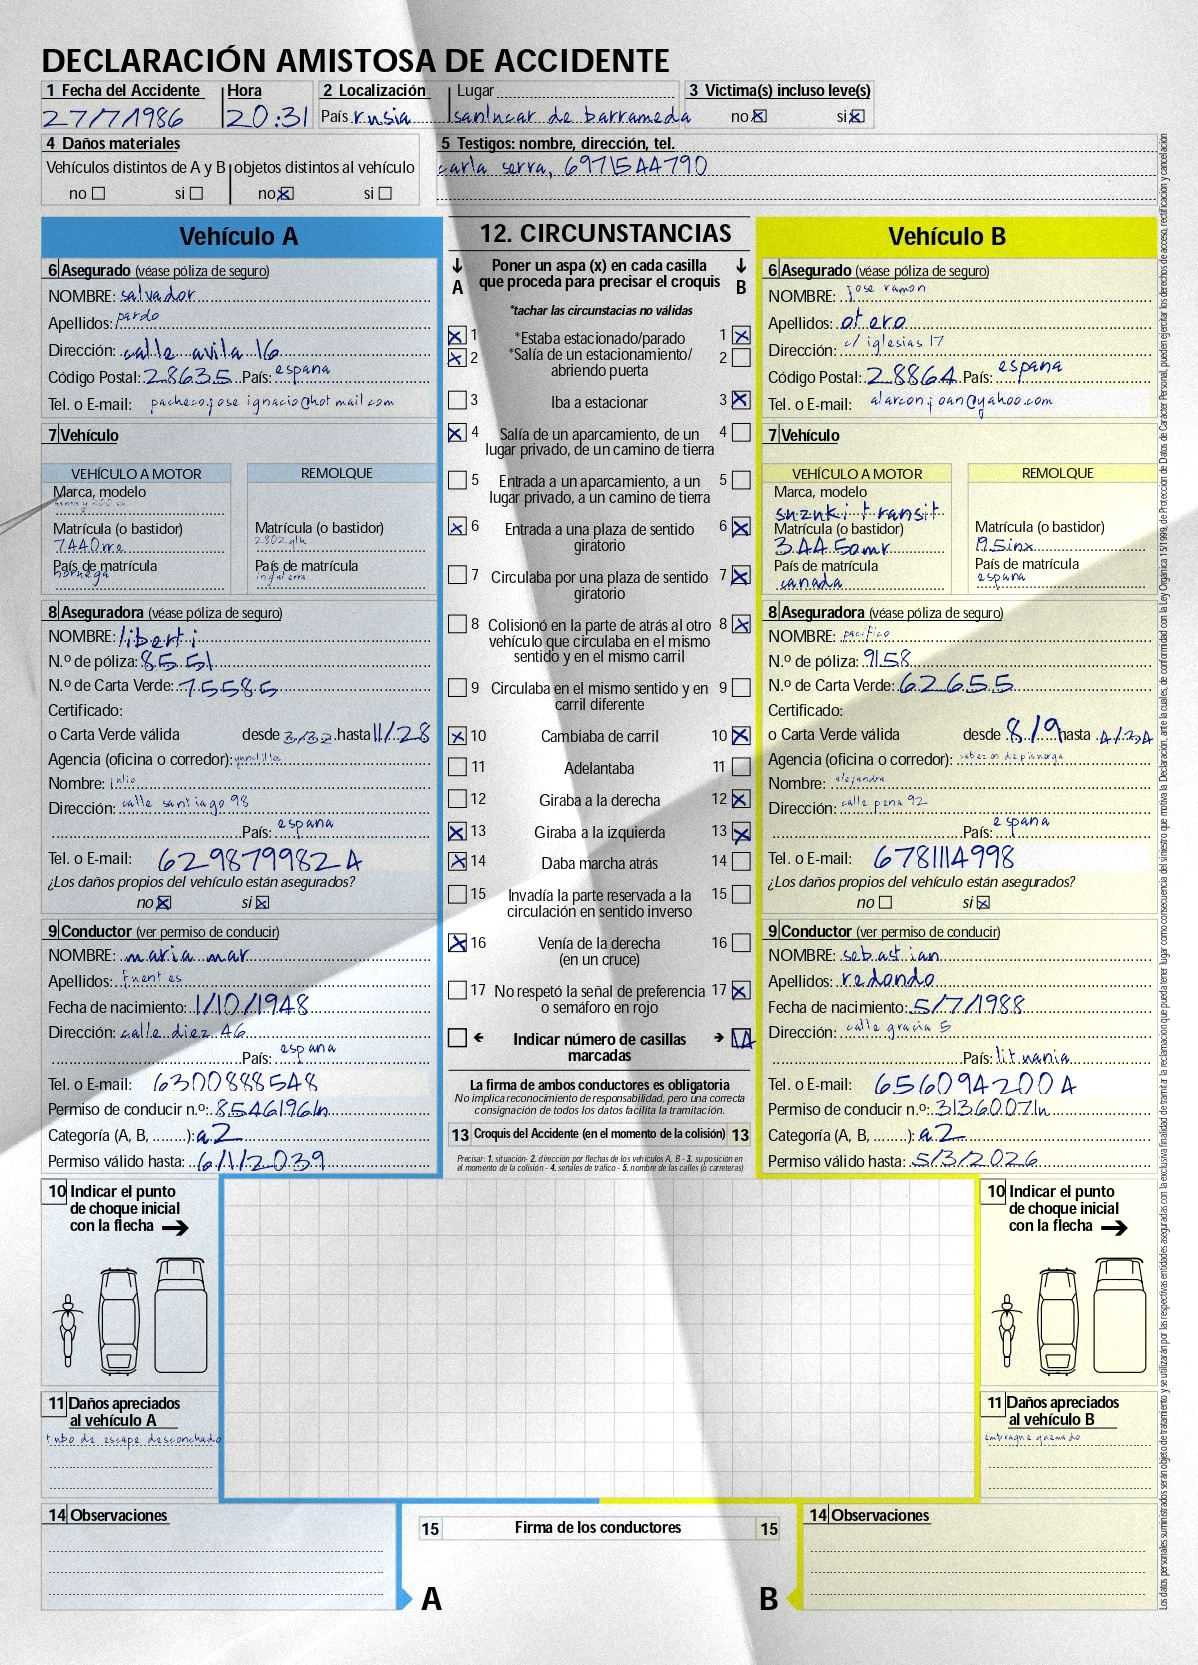 DECLARACIÓN AMISTOSA DE ACCIDENTE
1 Fecha del Accidente Hora 2 Localización Lugar 3 Victima(s) incluso leve(s)
27/7/1986 20:31 País rusia sanlucar de barrameda no si
4 Daños materiales 5 Testigos: nombre, dirección, tel.
Vehículos distintos de A y B objetos distintos al vehículo carla serra, 6971544790
no si no si
Vehículo A
6 Asegurado (véase póliza de seguro)
NOMBRE: salvador
Apellidos: pardo
Dirección: calle avila 16
Código Postal: 28635 País: espana
Tel. o E-mail: pacheco.jose ignacio@hotmail.com
7 Vehículo
VEHÍCULO A MOTOR REMOLQUE
Marca, modelo
Matrícula (o bastidor) Matrícula (o bastidor)
7440mre 2802glh
País de matrícula País de matrícula
noruega inglaterra
8 Aseguradora (véase póliza de seguro)
NOMBRE: liberti
N.º de póliza: 8551
N.º de Carta Verde: 75585
Certificado:
o Carta Verde válida desde 3/32 hasta 11/28
Agencia (oficina o corredor):
Nombre: julio
Dirección: calle santiago 98
País: espana
Tel. o E-mail: 6298799824
¿Los daños propios del vehículo están asegurados?
no si
9 Conductor (ver permiso de conducir)
NOMBRE: maria mar
Apellidos: fuentes
Fecha de nacimiento: 1/10/1948
Dirección: calle diez 46
País: espana
Tel. o E-mail: 6300888548
Permiso de conducir n.º: 8546196ln
Categoría (A, B, ........): a2
Permiso válido hasta: 6/1/2039
12. CIRCUNSTANCIAS
A Poner un aspa (x) en cada casilla que proceda para precisar el croquis B
*tachar las circunstacias no válidas
1 *Estaba estacionado/parado 1
2 *Salía de un estacionamiento/ 2
abriendo puerta
3 Iba a estacionar 3
4 Salía de un aparcamiento, de un 4
lugar privado, de un camino de tierra
5 Entrada a un aparcamiento, a un 5
lugar privado, a un camino de tierra
6 Entrada a una plaza de sentido 6
giratorio
7 Circulaba por una plaza de sentido 7
giratorio
8 Colisionó en la parte de atrás al otro 8
vehículo que circulaba en el mismo
sentido y en el mismo carril
9 Circulaba en el mismo sentido y en 9
carril diferente
10 Cambiaba de carril 10
11 Adelantaba 11
12 Giraba a la derecha 12
13 Giraba a la izquierda 13
14 Daba marcha atrás 14
15 Invadía la parte reservada a la 15
circulación en sentido inverso
16 Venía de la derecha 16
(en un cruce)
17 No respetó la señal de preferencia 17
o semáforo en rojo
Indicar número de casillas 14
marcadas
La firma de ambos conductores es obligatoria
No implica reconocimiento de responsabilidad, pero una correcta
consignación de todos los datos facilita la tramitación.
13 Croquis del Accidente (en el momento de la colisión) 13
Precisar: 1. situación- 2. dirección por flechas de los vehículos A, B - 3. su posición en
el momento de la colisión - 4. señales de tráfico - 5. nombre de las calles (o carreteras)
Vehículo B
6 Asegurado (véase póliza de seguro)
NOMBRE: jose ramon
Apellidos: otero
Dirección: c/ iglesias 17
Código Postal: 28864 País: espana
Tel. o E-mail: alarconjoan@yahoo.com
7 Vehículo
VEHÍCULO A MOTOR REMOLQUE
Marca, modelo
suzuki transit
Matrícula (o bastidor) Matrícula (o bastidor)
3445amr 195inx
País de matrícula País de matrícula
canada espana
8 Aseguradora (véase póliza de seguro)
NOMBRE: pacifico
N.º de póliza: 9158
N.º de Carta Verde: 62655
Certificado:
o Carta Verde válida desde 8/9 hasta 4/34
Agencia (oficina o corredor): cabezon de pisuerga
Nombre: alejandra
Dirección: calle pena 92
País: espana
Tel. o E-mail: 6781114998
¿Los daños propios del vehículo están asegurados?
no si
9 Conductor (ver permiso de conducir)
NOMBRE: sebastian
Apellidos: redondo
Fecha de nacimiento: 5/7/1988
Dirección: calle gracia 5
País: lituania
Tel. o E-mail: 6560942004
Permiso de conducir n.º: 3136007ln
Categoría (A, B, ........): a2
Permiso válido hasta: 5/3/2026
10 Indicar el punto
de choque inicial
con la flecha
10 Indicar el punto
de choque inicial
con la flecha
11 Daños apreciados
al vehículo A
tubo de escape desconchado
11 Daños apreciados
al vehículo B
embrague quemado
14 Observaciones
15 Firma de los conductores 15
A B
14 Observaciones
Los datos personales suministrados serán objeto de tratamiento y se utilizarán por las respectivas entidades aseguradas con la exclusiva finalidad de tramitar la reclamación que pueda tener lugar como consecuencia del siniestro que motiva la Declaración, ante la cuales, de conformidad con la Ley Orgánica 15/1999, de Protección de Datos de Carácter Personal, pueden ejercitar los derechos de acceso, rectificación y cancelación